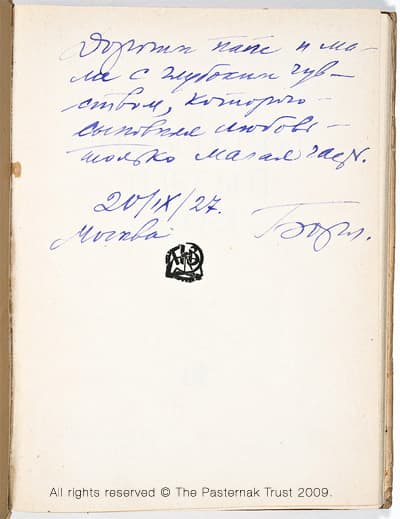 Дорогим папе и ма-
ме с глубоким чув-
ством, которого
сыновняя любовь -
только малая часть.
20/IX/27.
Москва
Боря.
All rights reserved © The Pasternak Trust 2009.